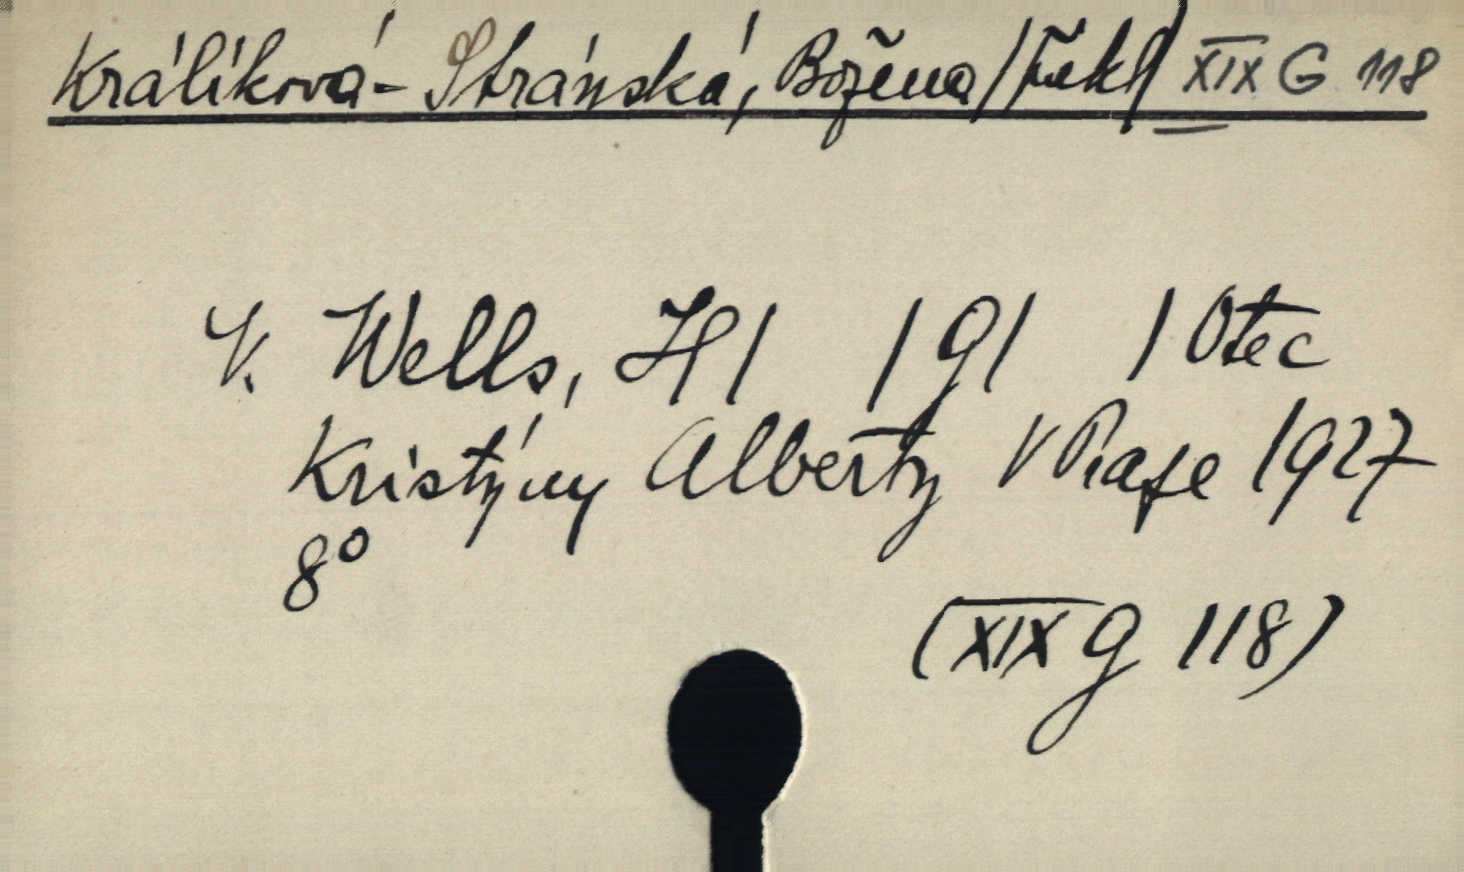 Králíková-Stránská, Božena /Překl/ XIX G 118
V. Wells, H/ /G/ /Otec
Kristýny Alberty V Praze 1927
8°
(XIX G 118)